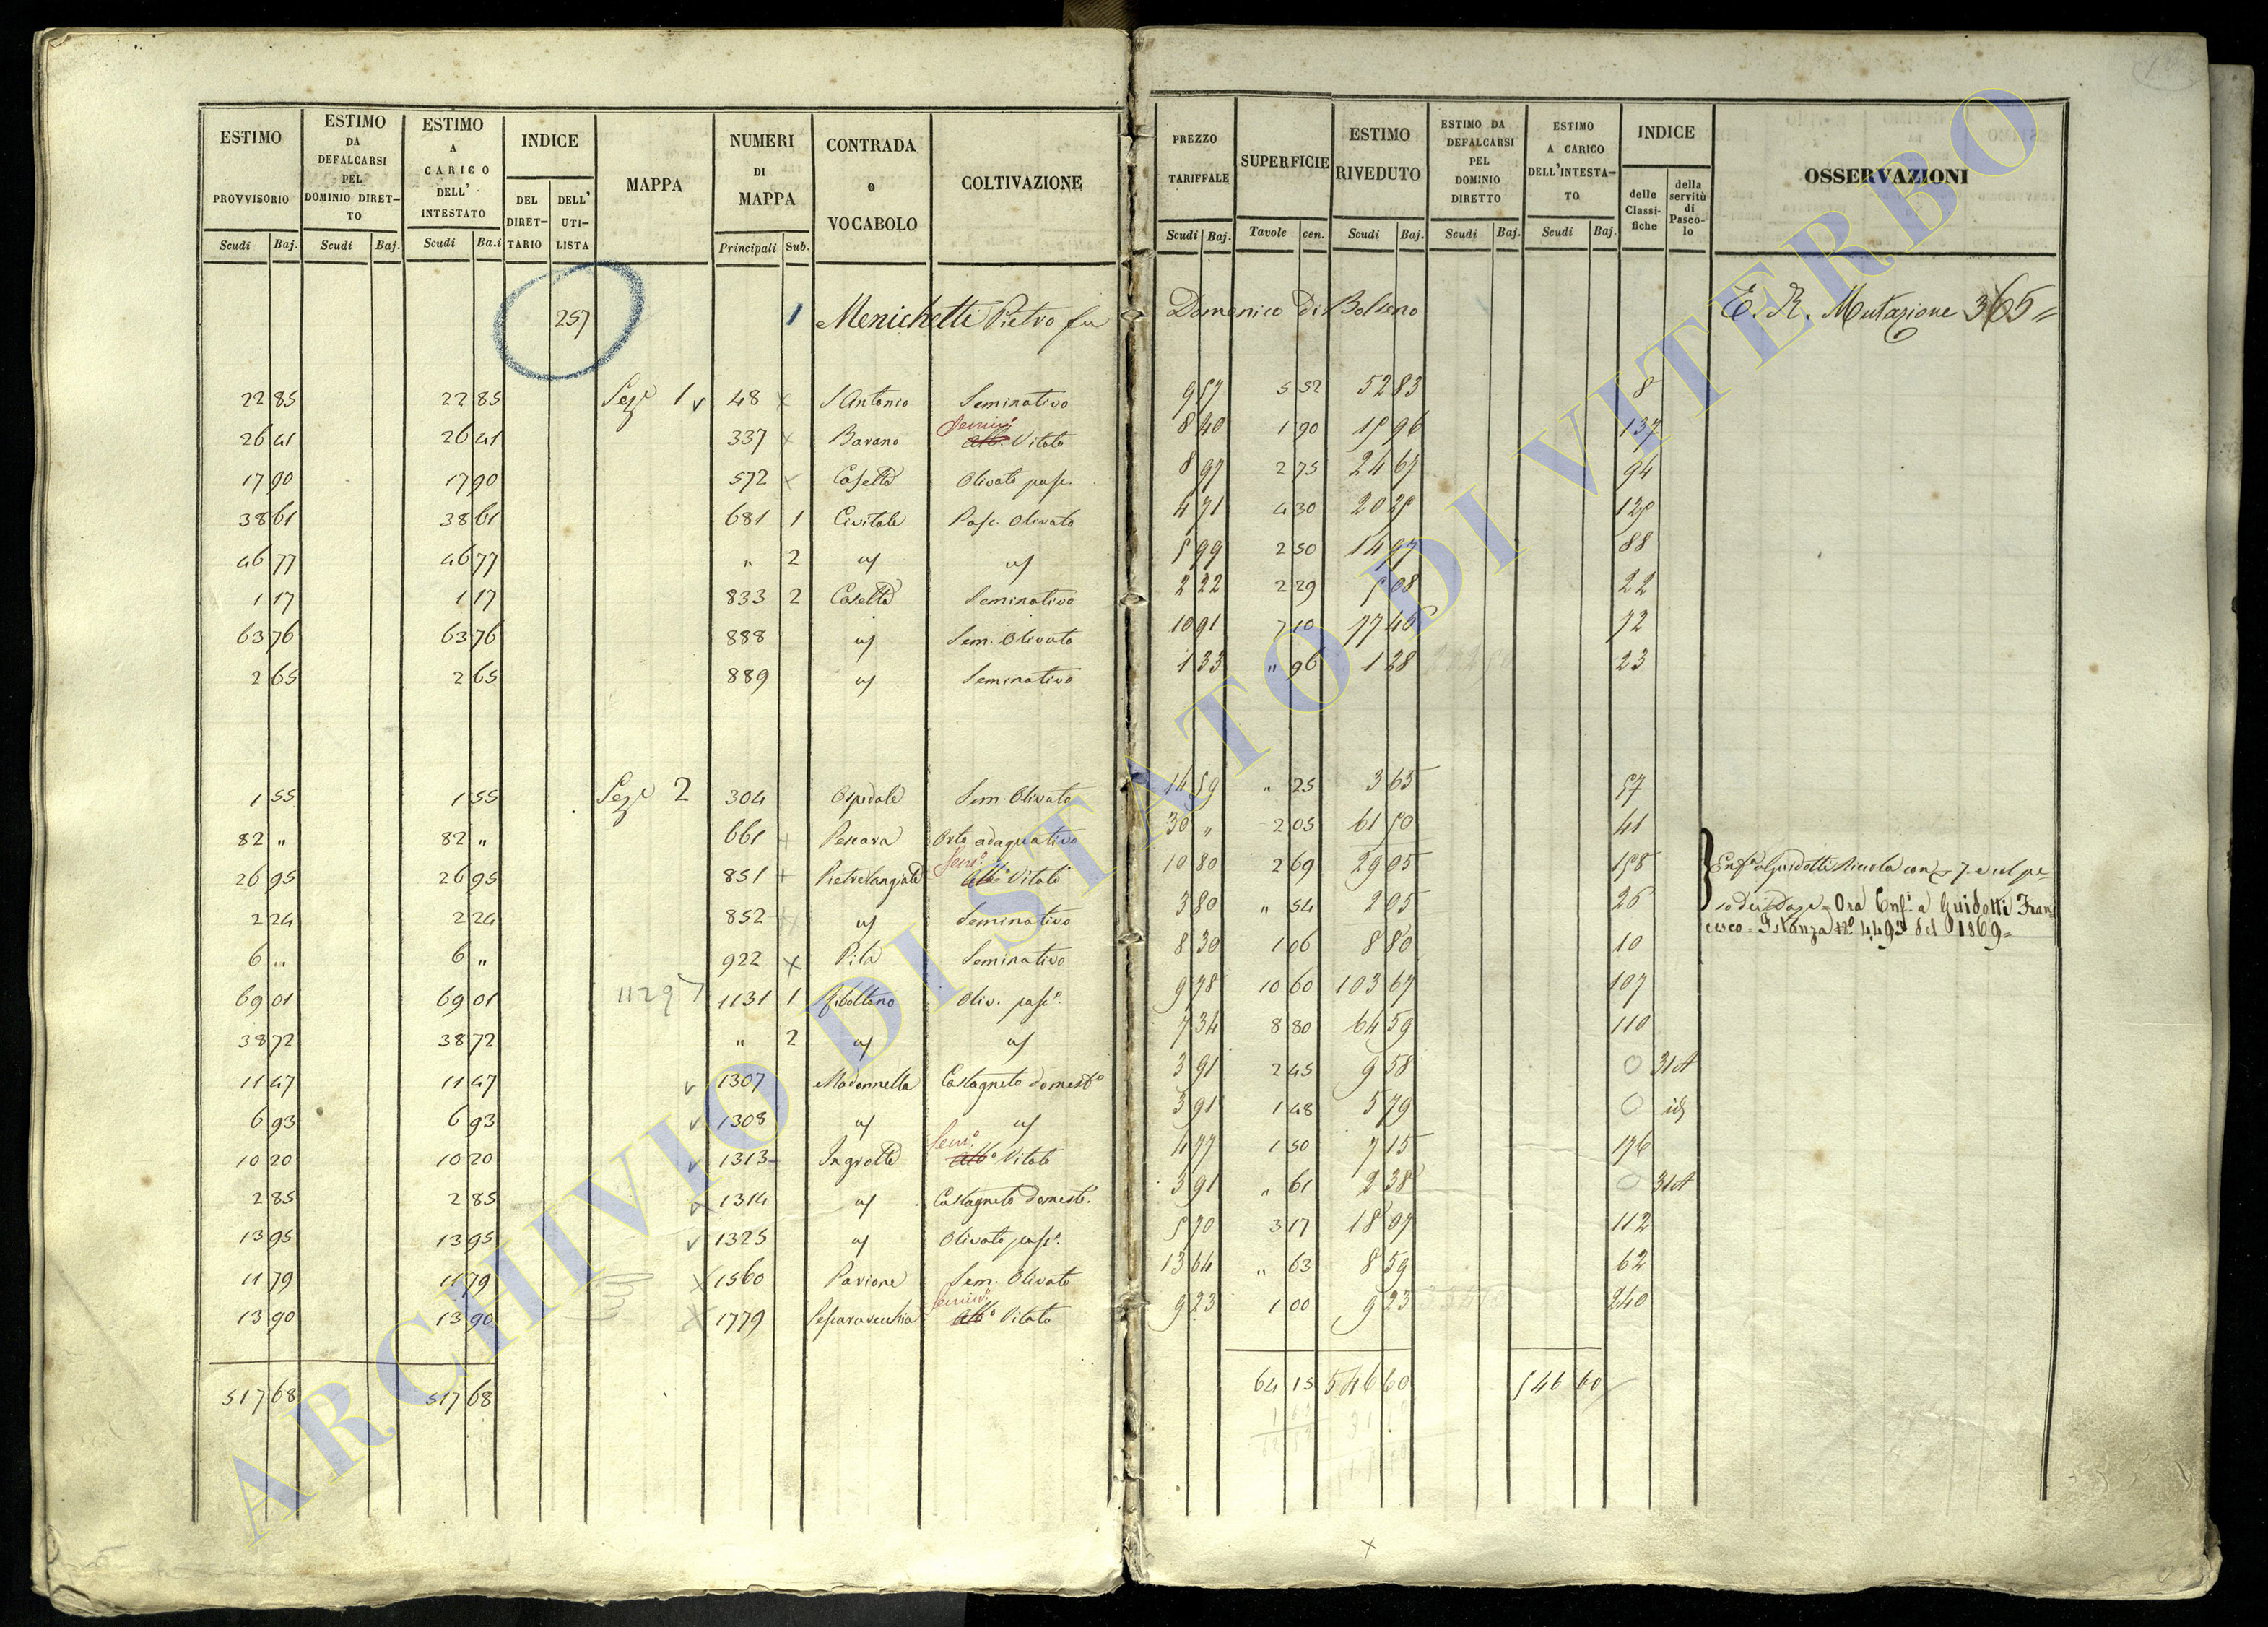 ESTIMO PROVVISORIO Scudi Baj.
ESTIMO DA DEFALCARSI PEL DOMINIO DIRET-TO Scudi Baj.
ESTIMO A CARICO DELL' INTESTATO Scudi Ba.i
INDICE DEL DIRET-TARIO DELL' UTI-LISTA
MAPPA
NUMERI DI MAPPA Principali Sub.
CONTRADA o VOCABOLO
COLTIVAZIONE
PREZZO TARIFFALE Scudi Baj.
SUPERFICIE Tavole cen.
ESTIMO RIVEDUTO Scudi Baj.
ESTIMO DA DEFALCARSI PEL DOMINIO DIRETTO Scudi Baj.
ESTIMO A CARICO DELL'INTESTA-TO Scudi Baj.
INDICE delle Classi-fiche della servitù di Pasco-lo
OSSERVAZIONI
257 1 Menichetti Pietro fu Domenico Di Bolseno E. R. Mutazione 365 =
22 85 22 85 Sez.e 1 48 S Antonio Seminativo 9 57 5 52 52 83 8
26 41 26 41 337 Barano Semin.o Alb.o Vitato 8 40 1 90 15 96 137
17 90 17 90 572 Casetta Olivato pasc. 8 97 2 75 24 67 94
38 61 38 61 681 1 Civitale Pasc. Olivato 4 71 4 30 20 25 129
46 77 46 77 " 2 a/ a/ 5 99 2 50 14 97 88
1 17 1 17 833 2 Casetta Seminativo 2 22 2 29 5 08 22
63 76 63 76 888 a/ Sem. Olivato 10 91 7 10 77 46 72
2 65 2 65 889 a/ Seminativo 1 33 " 96 1 28 23
1 55 1 55 Sez.e 2 304 Ospedale Sem. Olivato 14 59 " 25 3 65 57
82 " 82 " 661 Pescara Orto adaquativo 30 " 2 05 61 50 41
26 95 26 95 851 Pietrelangiate Sem.o Alb.o Vitato 10 80 2 69 29 05 158
2 24 2 24 852 a/ Seminativo 3 80 " 54 2 05 26
Ora Enf.a a Guidotti Fran
cesco = Istanza n.o 4493 del 1869 =
6 " 6 " 922 Pila Seminativo 8 30 1 06 8 80 10
69 01 69 01 11297 1131 1 Oliv. pasc.o 9 78 10 60 103 67 107
38 72 38 72 " 2 a/ a/ 7 34 8 80 64 59 110
11 47 11 47 1307 Madonnella Castagneto domest.o 3 91 2 45 9 58 0 31A
6 93 6 93 1308 a/ a/ 3 91 1 48 5 79 0 id
10 20 10 20 1313 Ingrotte Sem.o Alb.o Vitato 4 77 1 50 7 15 176
2 85 2 85 1314 a/ Castagneto domest.o 3 91 " 61 2 38 0 31A
13 95 13 95 1325 a/ Olivato pasc.o 5 70 3 17 18 07 112
11 79 11 79 1560 Pavione Sem. Olivato 13 64 " 63 8 59 62
13 90 13 90 1779 Pescaravecchia Semin.o Alb.o Vitato 9 23 1 00 9 23 240
517 68 517 68 64 15 546 60 546 60
ARCHIVIO DI STATO DI VITERBO